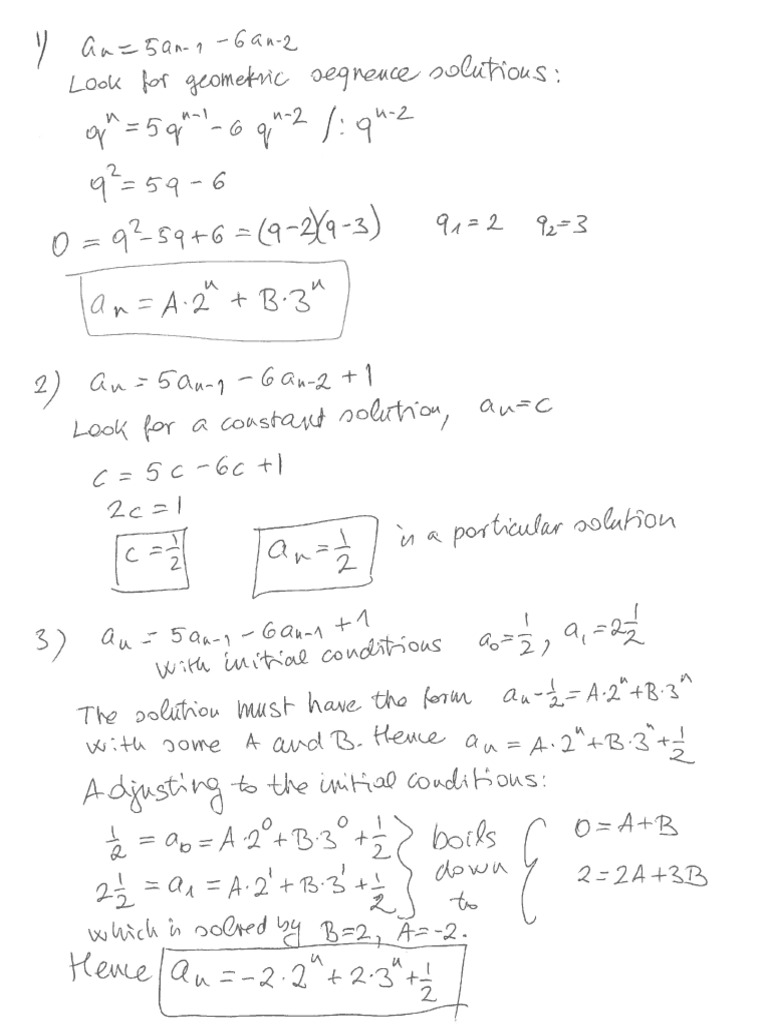 1) aₙ = 5aₙ₋₁ - 6aₙ₋₂
Look for geometric sequence solutions:
qⁿ = 5qⁿ⁻¹ - 6qⁿ⁻² /: qⁿ⁻²
q² = 5q - 6
0 = q² - 5q + 6 = (q-2)(q-3) q₁ = 2 q₂ = 3
aₙ = A·2ⁿ + B·3ⁿ
2) aₙ = 5aₙ₋₁ - 6aₙ₋₂ + 1
Look for a constant solution, aₙ = c
c = 5c - 6c + 1
2c = 1
c = 1/2 aₙ = 1/2 is a particular solution
3) aₙ = 5aₙ₋₁ - 6aₙ₋₁ + 1
with initial conditions a₀ = 1/2, a₁ = 2 1/2
The solution must have the form aₙ - 1/2 = A·2ⁿ + B·3ⁿ
with some A and B. Hence aₙ = A·2ⁿ + B·3ⁿ + 1/2
Adjusting to the initial conditions:
1/2 = a₀ = A·2⁰ + B·3⁰ + 1/2 } boils { 0 = A + B
2 1/2 = a₁ = A·2¹ + B·3¹ + 1/2 } down { 2 = 2A + 3B
to
which is solved by B = 2, A = -2.
Hence aₙ = -2·2ⁿ + 2·3ⁿ + 1/2